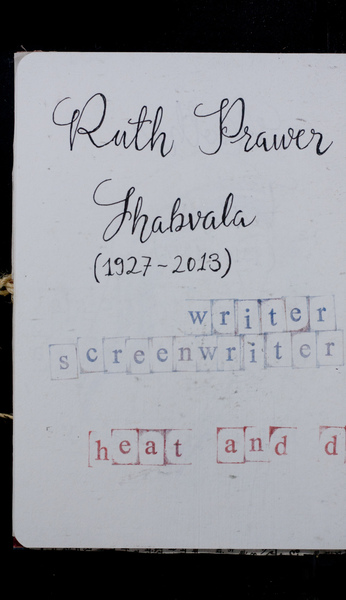 Ruth Prawer
Jhabvala
(1927-2013)
writer
screenwriter
heat and d